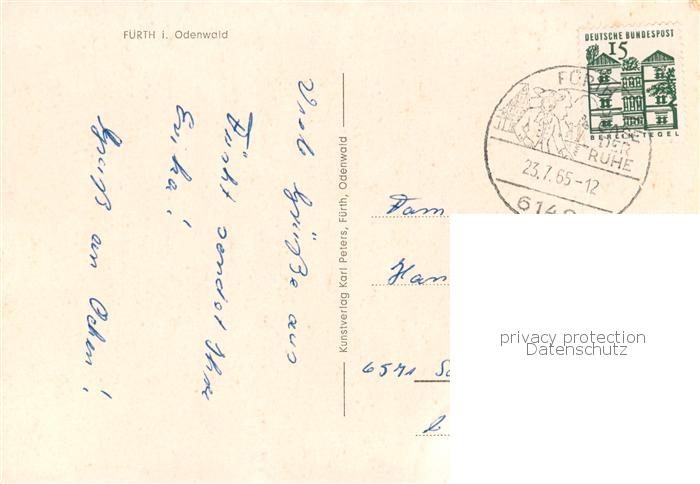 FÜRTH i. Odenwald
Viele Grüße aus
Fürth sendet Ihre
Erika!
Gruß an Oehm!
Kunstverlag Karl Peters, Fürth, Odenwald
DEUTSCHE BUNDESPOST
15
BERLIN-TEGEL
FÜRTH
OASE
DER
RUHE
23.7.65-12
6149
Fam
Han
6571
privacy protection
Datenschutz